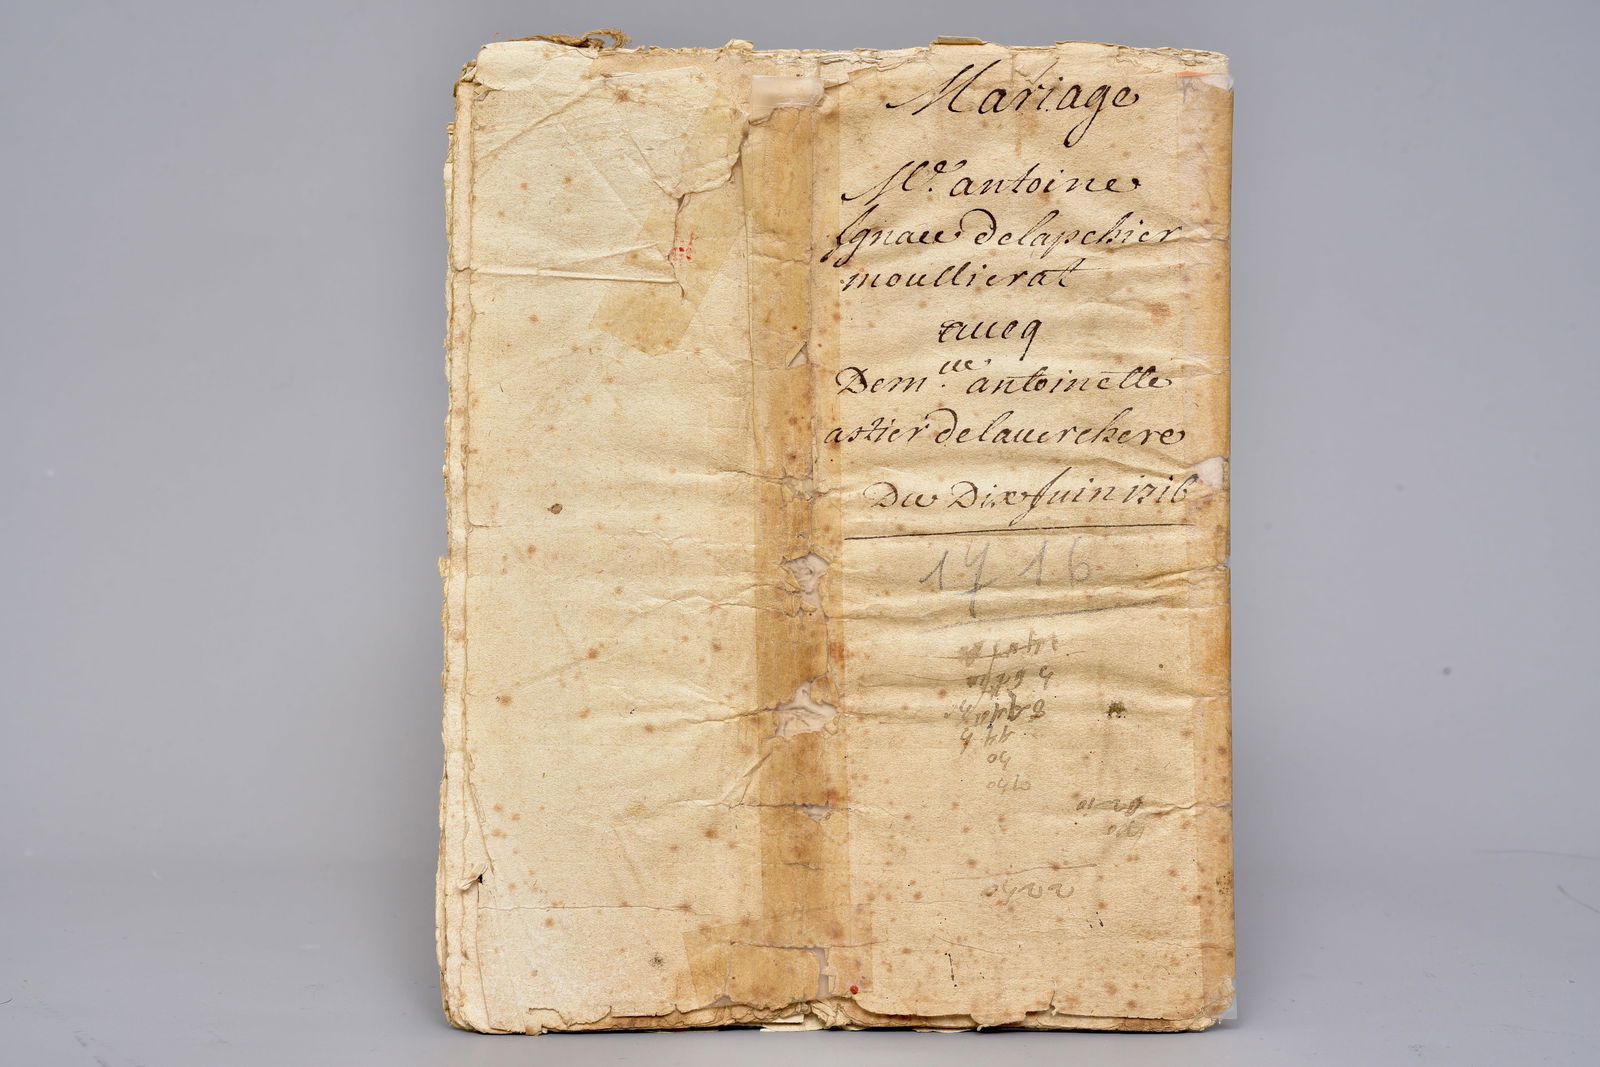 Mariage
Mr. antoine
Ignace delapchier
moullierat
aueq
Demlle. antoinette
astier delauerchere
Du Dix Juin 1716
1716
2240